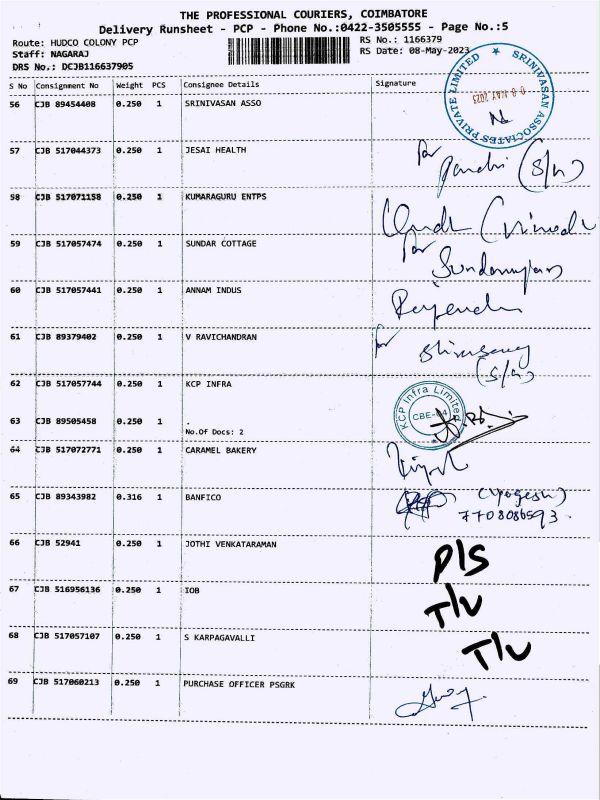 THE PROFESSIONAL COURIERS, COIMBATORE
Delivery Runsheet - PCP - Phone No.:0422-3505555 - Page No.:5
Route: HUDCO COLONY PCP
RS No.: 1166379
Staff: NAGARAJ
RS Date: 08-May-2023
DRS No.: DCJB116637905
S No Consignment No Weight PCS Consignee Details Signature
56 CJB 89454408 0.250 1 SRINIVASAN ASSO
SRINIVASAN ASSOCIATES PRIVATE LIMITED ★
08 MAY 2023
57 CJB 517044373 0.250 1 JESAI HEALTH
for
(S/n)
58 CJB 517071158 0.250 1 KUMARAGURU ENTPS
59 CJB 517057474 0.250 1 SUNDAR COTTAGE
for
60 CJB 517057441 0.250 1 ANNAM INDUS
61 CJB 89379402 0.250 1 V RAVICHANDRAN
for
(S/n)
62 CJB 517057744 0.250 1 KCP INFRA
KCP Infra Limited
CBE-04
63 CJB 89505458 0.250 1 .
No.Of Docs: 2
64 CJB 517072771 0.250 1 CARAMEL BAKERY
65 CJB 89343982 0.316 1 BANFICO
(Yogesh)
7708086593
66 CJB 52941 0.250 1 JOTHI VENKATARAMAN
P/S
67 CJB 516956136 0.250 1 IOB
T/V
68 CJB 517057107 0.250 1 S KARPAGAVALLI
T/V
69 CJB 517060213 0.250 1 PURCHASE OFFICER PSGRK